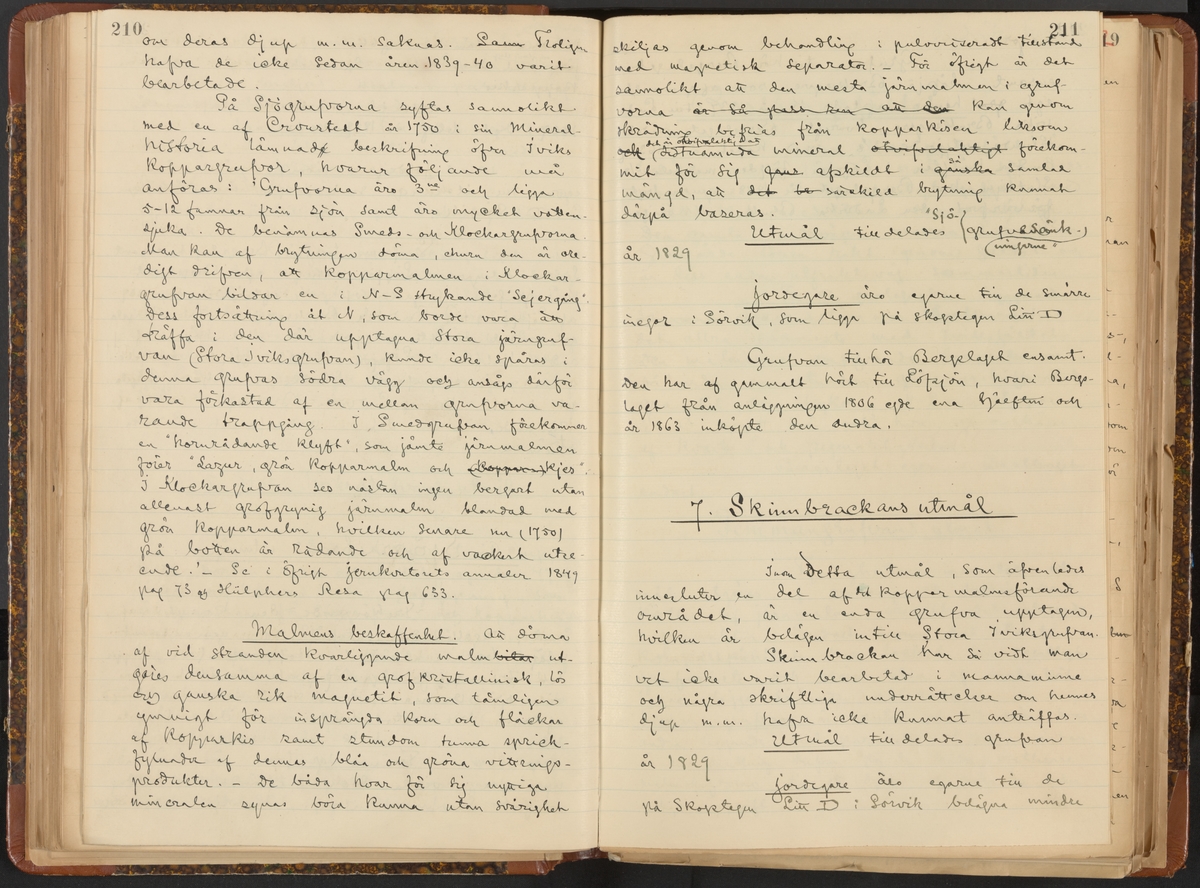 210
om deras djup m.m. saknas. Samt Troligen
hafva de icke sedan åren 1839-40 varit
bearbetade.
På Sjögrufvorna syftas sannolikt
med en af Cronstedt år 1750 i sin Mineral-
historia lämnade beskrifning öfver Iviks
Koppargrufvor, hvarur följande må
anföras: "Grufvorna äro 3ne och ligga
5-12 famnar från sjön samt äro mycket vatten-
sjuka. De benämnas Smeds- och Klockargrufvorna.
Man kan af brytningen döma, churu den är ore-
digt drifven, att kopparmalmen i Klockar-
grufvan bildar en i N-S strykande "Sejergång".
Dess fortsättning åt N, som borde vara att
träffa i den där upptagna Stora järngruf-
van (Stora Iviksgrufvan), kunde icke spåras i
denna grufvas södra vägg och ansågs därför
vara förkastad af en mellan grufvorna va-
rande trappgång. I Smedgrufvan förekommer
en "hornrådande klyft", som jämte järnmalmen
förer "Lazur, grön kopparmalm och kjes".
I Klockargrufvan ses nästan ingen bergart utan
allenast grofgynig järnmalm blandad med
grön kopparmalm, hvilken senare nu (1750)
på botten är rådande och af vackert utse-
ende." – Se i öfrigt jernkontorets annaler 1849
pag 73 og Hülphers Resa pag 633.
Malmens beskaffenhet. Att döma
af vid stranden kvarliggande malmbitar ut-
göres densamma af en grofkristallinisk, lös
och ganska rik magnetit, som tämligen
ymnigt för insprängda korn och fläckar
af kopparkis samt stundom tunna sprick-
fyllnader af dennas blåa och gröna vittrings-
produkter. – De båda hvar för sig nyttiga
mineralen synas böra kunna utan svårighet
211
skiljas genom behandling i pulvriseradt tillstånd
med magnetisk separator. – För öfrigt är det
sannolikt att den mesta järnmalmen i gruf-
vorna är så pass ren att den kan genom
skrädning befrias från kopparkisen liksom
det är otvifvelaktigt att
och sistnämnda mineral otvifvelaktigt förekom-
mit för sig afskildt i så ganska samlad
mängd, att det särskild brytning kunnat
därpå baseras.
Utmål tilldelades "Sjö-
grufvesänk-
ningarne"
år 1829
Jordegare äro egarne till de smärre
inegor i Sörvik, som ligga på skogstegen Litt D
Grufvan tillhör Bergslaget ensamt.
Den har af gammalt hört till Löfsjön, hvari Bergs-
laget från anläggningen 1806 egde ena hälften och
år 1863 inköpte den andra.
7. Skinnbrackans utmål
Inom Detta utmål, som äfvenledes
innesluter en del af det kopparmalmsförande
området, är en enda grufva upptagen,
hvilken är belägen intill Stora Iviksgrufvan.
Skinnbrackan har så vidt man
vet icke varit bearbetad i mannaminne
och några skriftliga underrättelser om hennes
djup m.m. hafva icke kunnat anträffas.
Utmål tilldelades grufvan
år 1829
Jordegare äro egarne till de
på Skogstegen Litt D i Sörvik belägna mindre